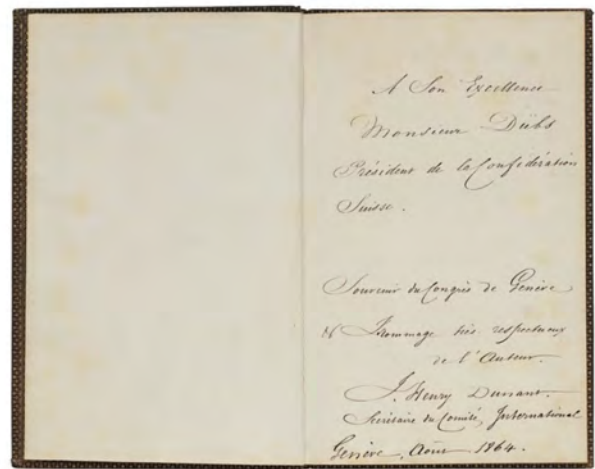 A Son Excellence
Monsieur Dubs
Président de la Confédération
Suisse.
Souvenir du Congrès de Genève
& Hommage très respectueux
de l'Auteur.
J. Henry Dunant.
Secrétaire du Comité International
Genève, Août 1864.